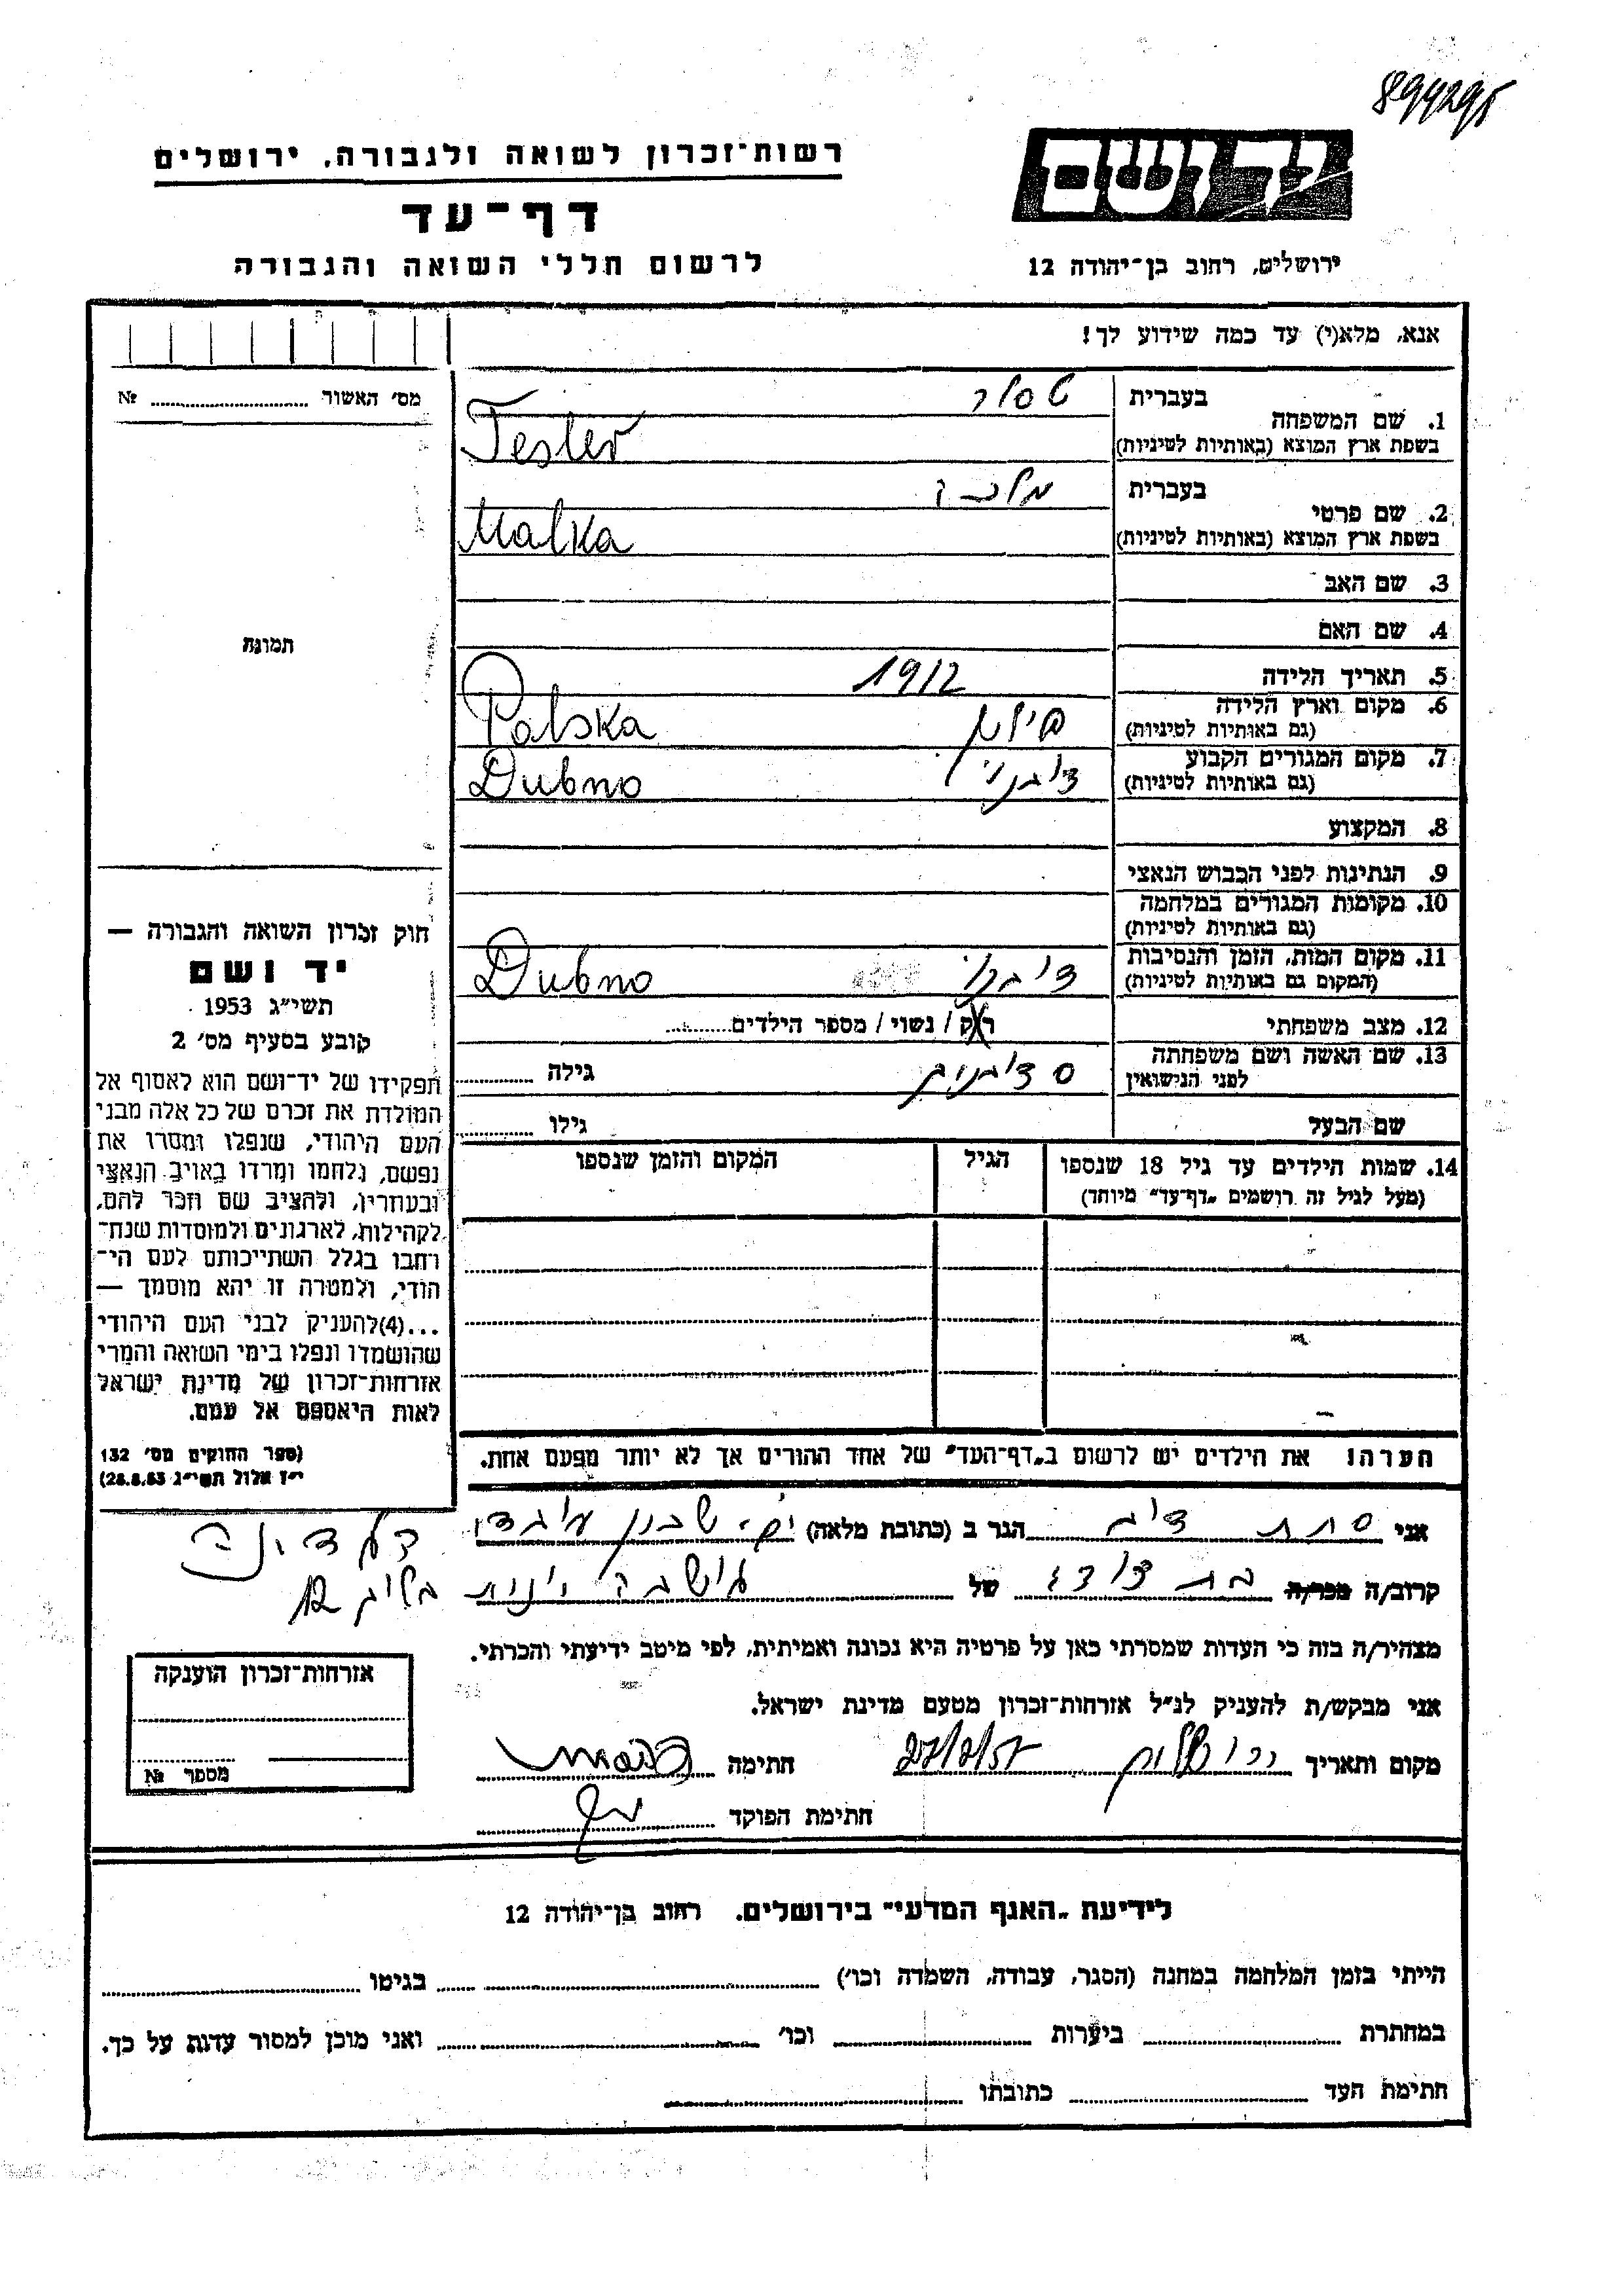 899295
יד ושם
רשות־זכרון לשואה ולגבורה, ירושלים
דף־עד
לרשום חללי השואה והגבורה
ירושלים, רחוב בן־יהודה 12
אנא, מלא(י) עד כמה שידוע לך!
מס׳ האשור № 
1. שם המשפחה בעברית טסלר
בשפת ארץ המוצא (באותיות לטיניות) Tesler
2. שם פרטי בעברית מלכה
בשפת ארץ המוצא (באותיות לטיניות) Malka
3. שם האב
4. שם האם
תמונה
5. תאריך הלידה 1912
6. מקום וארץ הלידה פולין Polska
(גם באותיות לטיניות)
7. מקום המגורים הקבוע דובנו Dubno
(גם באותיות לטיניות)
8. המקצוע
9. הנתינות לפני הכבוש הנאצי
10. מקומות המגורים במלחמה
(גם באותיות לטיניות)
11. מקום המות, הזמן והנסיבות דובנו Dubno
(המקום גם באותיות לטיניות)
12. מצב משפחתי רוק / נשוי / מספר הילדים
13. שם האשה ושם משפחתה גילה
לפני הנישואין
שם הבעל גילו
14. שמות הילדים עד גיל 18 שנספו הגיל המקום והזמן שנספו
(מעל לגיל זה רושמים „דף־עד״ מיוחד)
חוק זכרון השואה והגבורה —
יד ושם
תשי״ג 1953
קובע בסעיף מס׳ 2
תפקידו של יד־ושם הוא לאסוף אל
המולדת את זכרם של כל אלה מבני
העם היהודי, שנפלו ומסרו את
נפשם, נלחמו ומרדו באויב הנאצי
ובעוזריו, ולהציב שם וזכר להם,
לקהילות, לארגונים ולמוסדות שנח־
רבו בגלל השתייכותם לעם הי־
הודי, ולמטרה זו יהא מוסמך —
...(4) להעניק לבני העם היהודי
שהושמדו ונפלו בימי השואה והמרי
אזרחות־זכרון של מדינת ישראל
לאות היאספם אל עמם.
(ספר החוקים מס׳ 132
י״ז אלול תשי״ג 28.8.53)
הערה! את הילדים יש לרשום ב„דף־העד״ של אחד ההורים אך לא יותר מפעם אחת.
אני הגר ב (כתובת מלאה)
קרוב/ה מכר/ה בת דודו של
מצהיר/ה בזה כי העדות שמסרתי כאן על פרטיה היא נכונה ואמיתית, לפי מיטב ידיעתי והכרתי.
אני מבקש/ת להעניק לנ״ל אזרחות־זכרון מטעם מדינת ישראל.
מקום ותאריך ירושלים חתימה
חתימת הפוקד
אזרחות־זכרון הוענקה
מספר №
לידיעת „האגף המדעי״ בירושלים. רחוב בן־יהודה 12
הייתי בזמן המלחמה במחנה (הסגר, עבודה, השמדה וכו׳) בגיטו
במחתרת ביערות וכו׳ ואני מוכן למסור עדות על כך.
חתימת העד כתובתו